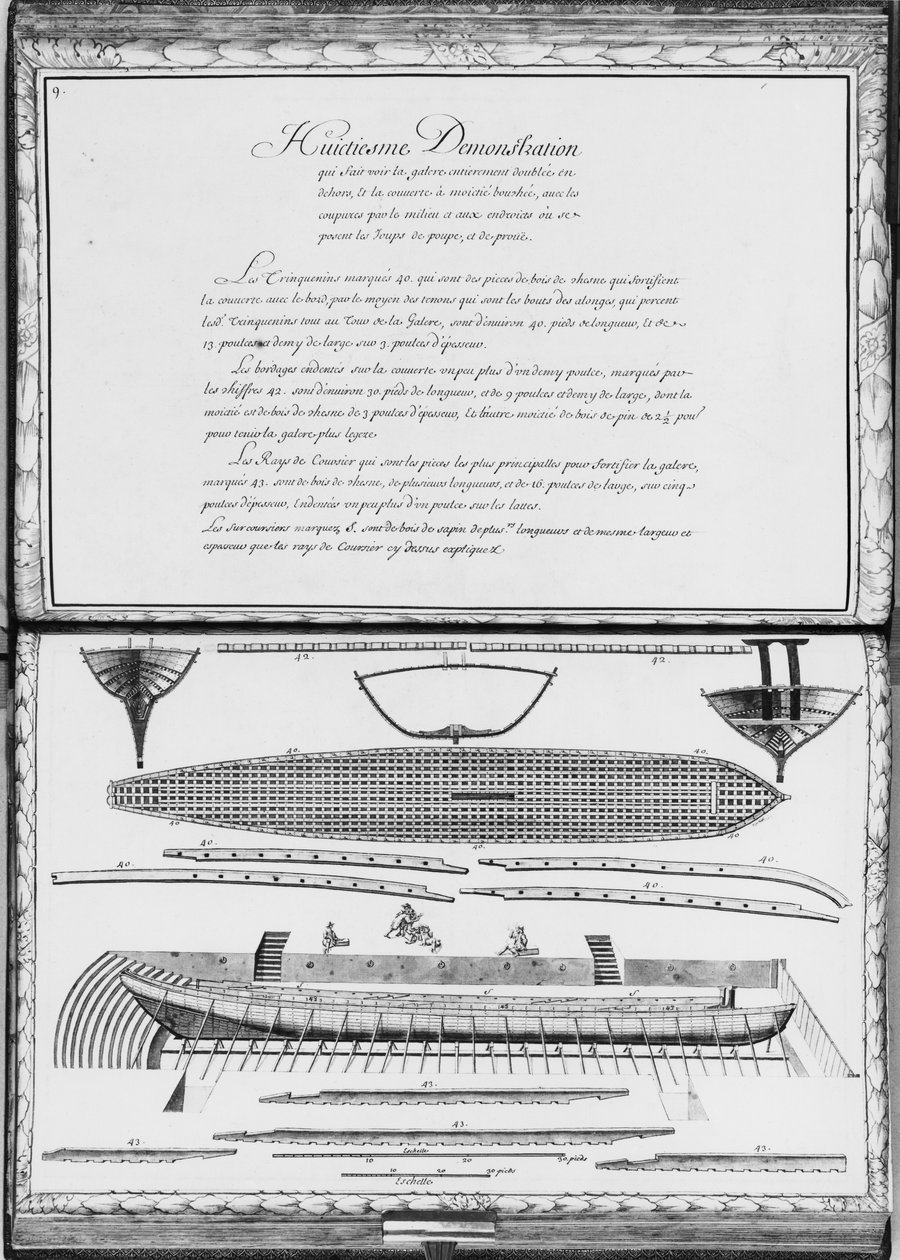 9.
Huictiesme Demonstration
qui fait voir la galere entierement doublée en
dehors, Et la couuerte à moictié bouchée, auec les
coupures par le milieu et aux endroicts où se
posent les Joups de poupe, et de prouë.
Les Trinquenins marqués 40. qui sont des pieces de bois de chesne qui fortifient
la couuerte auec le bord, par le moyen des tenons qui sont les bouts des alonges, qui percent
lesd. Trinquenins tout au Tour de la Galere, sont d'enuiron 40. pieds de longueur, Et de
13. poulces et demy de large sur 3. poulces d'épesseur.
Les bordages endentés sur la couuerte vn peu plus d'vn demy poulce, marqués par
les chiffres 42. sont d'enuiron 30. pieds de longueur, et de 9 poulces et demy de large, dont la
moictié est de bois de chesne de 3 poulces d'épesseur, Et l'autre moictié de bois de pin de 2 1/2 poul.
pour tenir la galere plus legere
Les Rays de Coursier qui sont les pieces les plus principalles pour fortifier la galere,
marqués 43. sont de bois de chesne, de plusieurs longueurs, et de 16. poulces de large, sur cinq
poulces d'épesseur, Endentées vn peu plus d'vn poulce sur les lattes.
Les Surcoursiers marquez S. sont de bois de sapin de plus.rs longueurs et de mesme largeur et
espesseur que les rays de Coursier cy dessus expliquez
42.
42.
40.
40.
40
40.
40
40.
40.
40.
40.
S
S
S
43
43
43
43.
43.
43.
43.
Eschelle
10
20
30. pieds
10
20
30 pieds
Eschelle